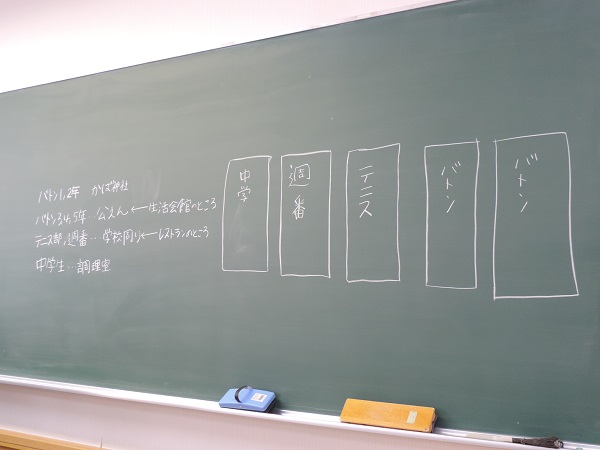 バトン1,2年 かば神社
バトン3,4,5年…公えん←生活会館のところ
テニス部,週番…学校周り←レストランのところ
中学生…調理室
中学
週番
テニス
バトン
バトン